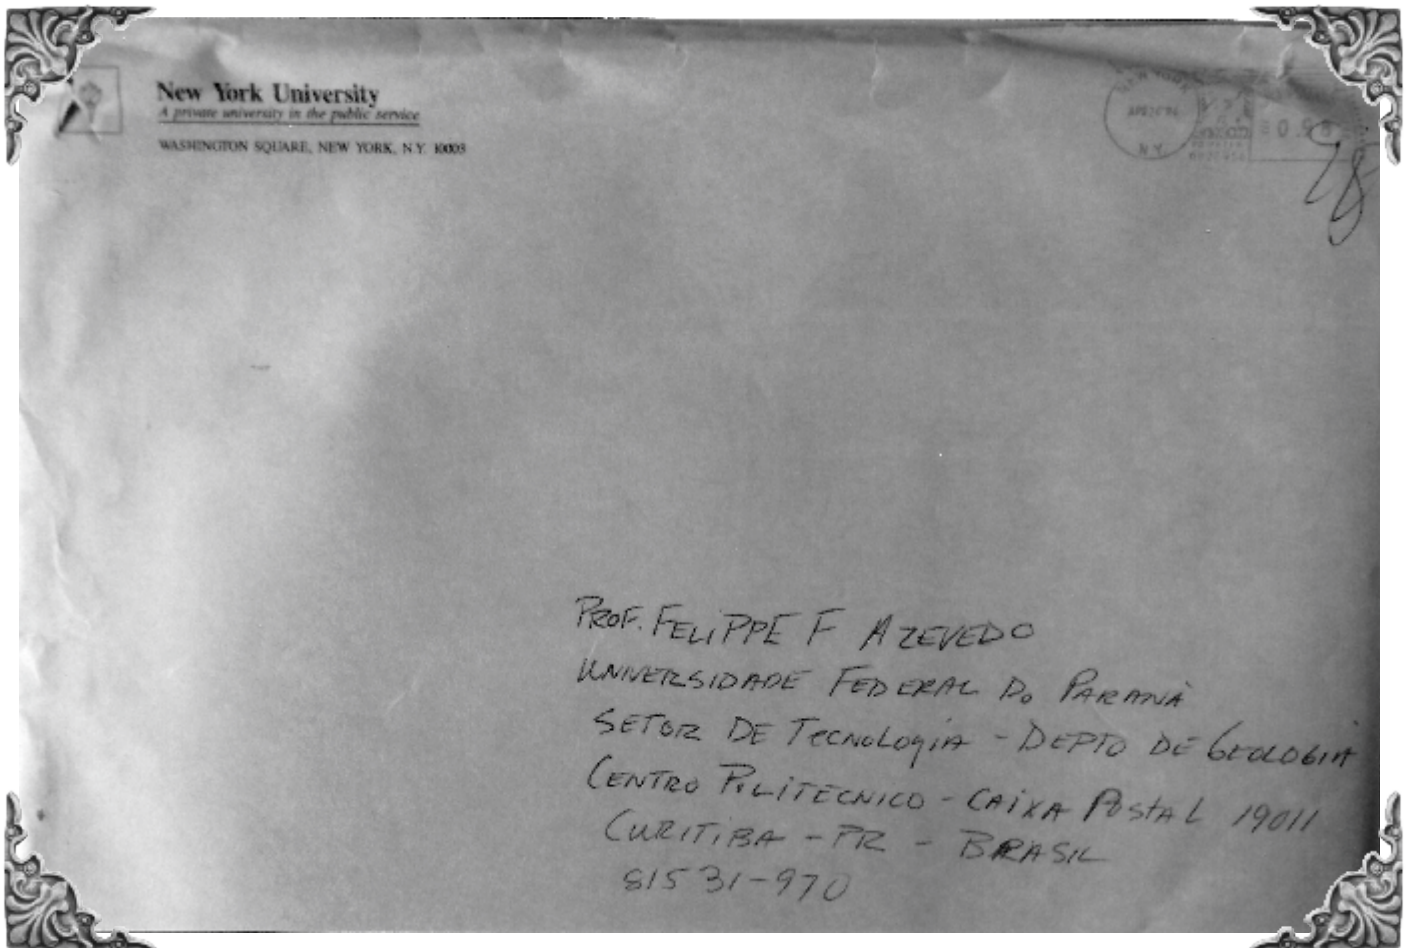 New York University
A private university in the public service
WASHINGTON SQUARE, NEW YORK, N.Y. 10003
NEW YORK
N.Y.
PROF. FELIPPE F AZEVEDO
UNIVERSIDADE FEDERAL DO PARANÁ
SETOR DE TECNOLOGIA - DEPTO DE GEOLOGIA
CENTRO POLITECNICO - CAIXA POSTAL 19011
CURITIBA - PR - BRASIL
81531-970